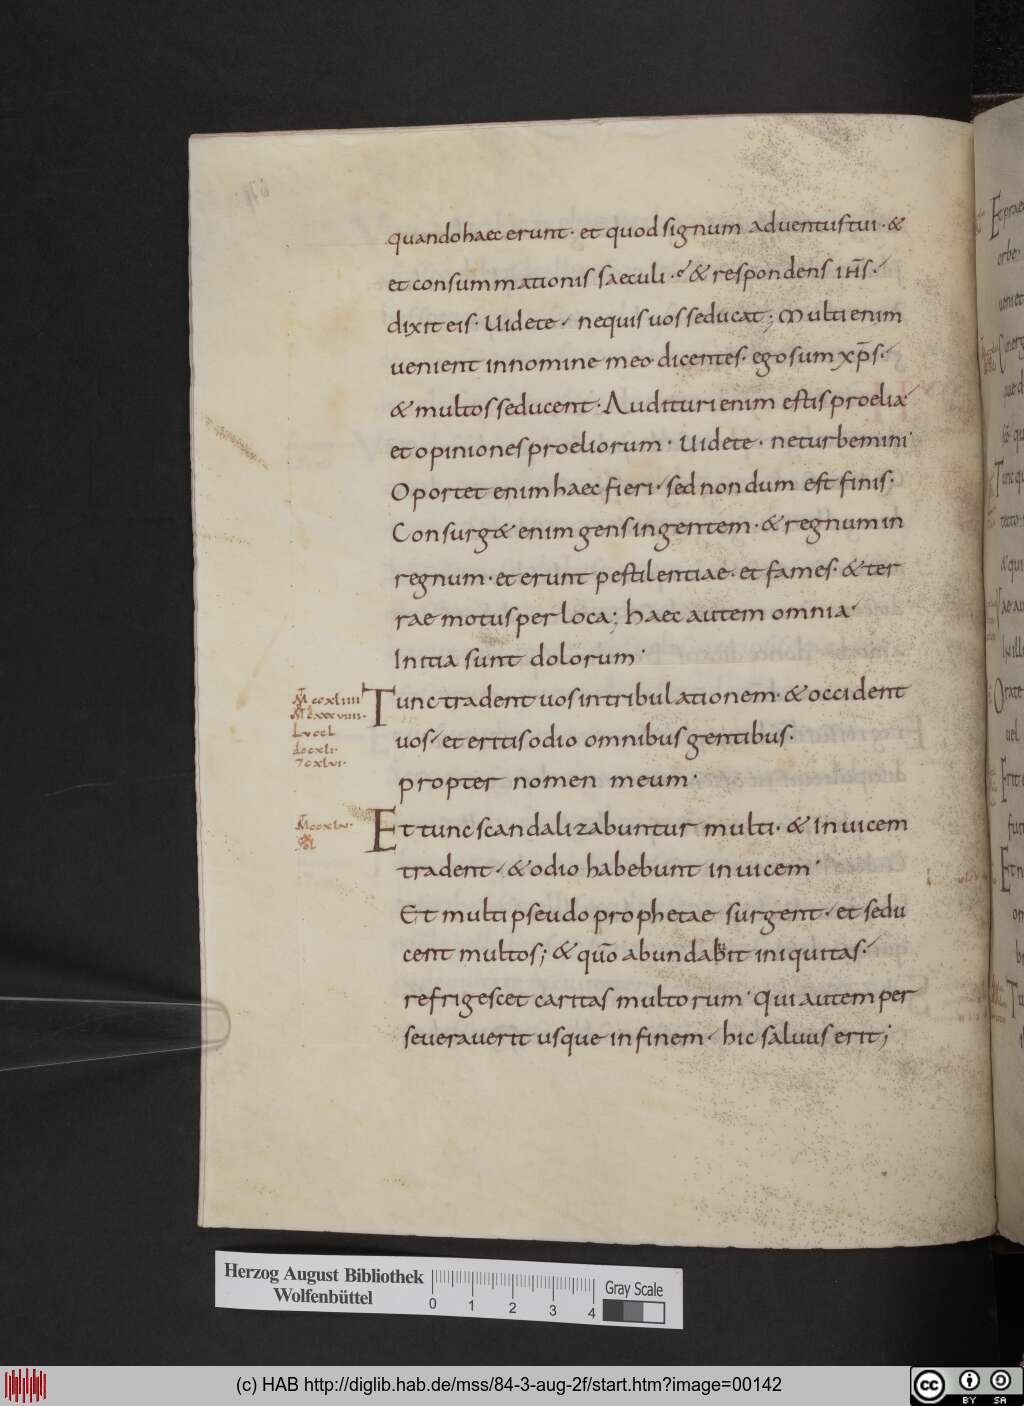 quando haec erunt · et quod signum adventus tui · &
et consummationis saeculi · & respondens ih̄s ·
dixit eis · Uidete · nequis uos seducat ; Multi enim
uenient in nomine meo · dicentes · ego sum xp̄s ·
& multos seducent · Audituri enim estis proelia
et opiniones proeliorum · Uidete · ne turbemini ·
Oportet enim haec fieri · sed nondum est finis ·
Consurg& enim gens in gentem · & regnum in
regnum · et erunt pestilentiae · et fames · & ter
rae motus per loca ; haec autem omnia ·
Initia sunt dolorum ·
Tunc tradent uos in tribulationem · & occident
uos · et eritis odio omnibus gentibus ·
propter nomen meum ·
Et tunc scandalizabuntur multi · & inuicem
tradent · & odio habebunt inuicem ·
Et multi pseudo prophetae surgent · et sedu
cent multos ; & qūo abundabit iniquitas ·
refrigescet caritas multorum · Qui autem per
severaverit usque in finem · hic saluus erit ;
Herzog August Bibliothek
Wolfenbüttel
0 1 2 3 4
Gray Scale
(c) HAB http://diglib.hab.de/mss/84-3-aug-2f/start.htm?image=00142
cc BY SA